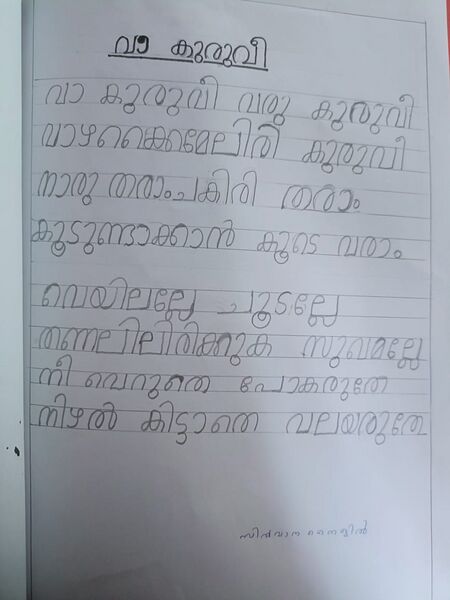 വാ കുരുവീ
വാ കുരുവി വരു കുരുവീ
വാഴക്കൈമേലിരി കുരുവി
നാരു തരാം ചകിരി തരാം
കൂടുണ്ടാക്കാൻ കൂടെ വരാം
വെയിലല്ലേ ചൂടല്ലേ
തണലിലിരിക്കുക സുഖമല്ലേ
നീ വെറുതെ പോകരുതേ
നിഴൽ കിട്ടാതെ വലയരുതേ